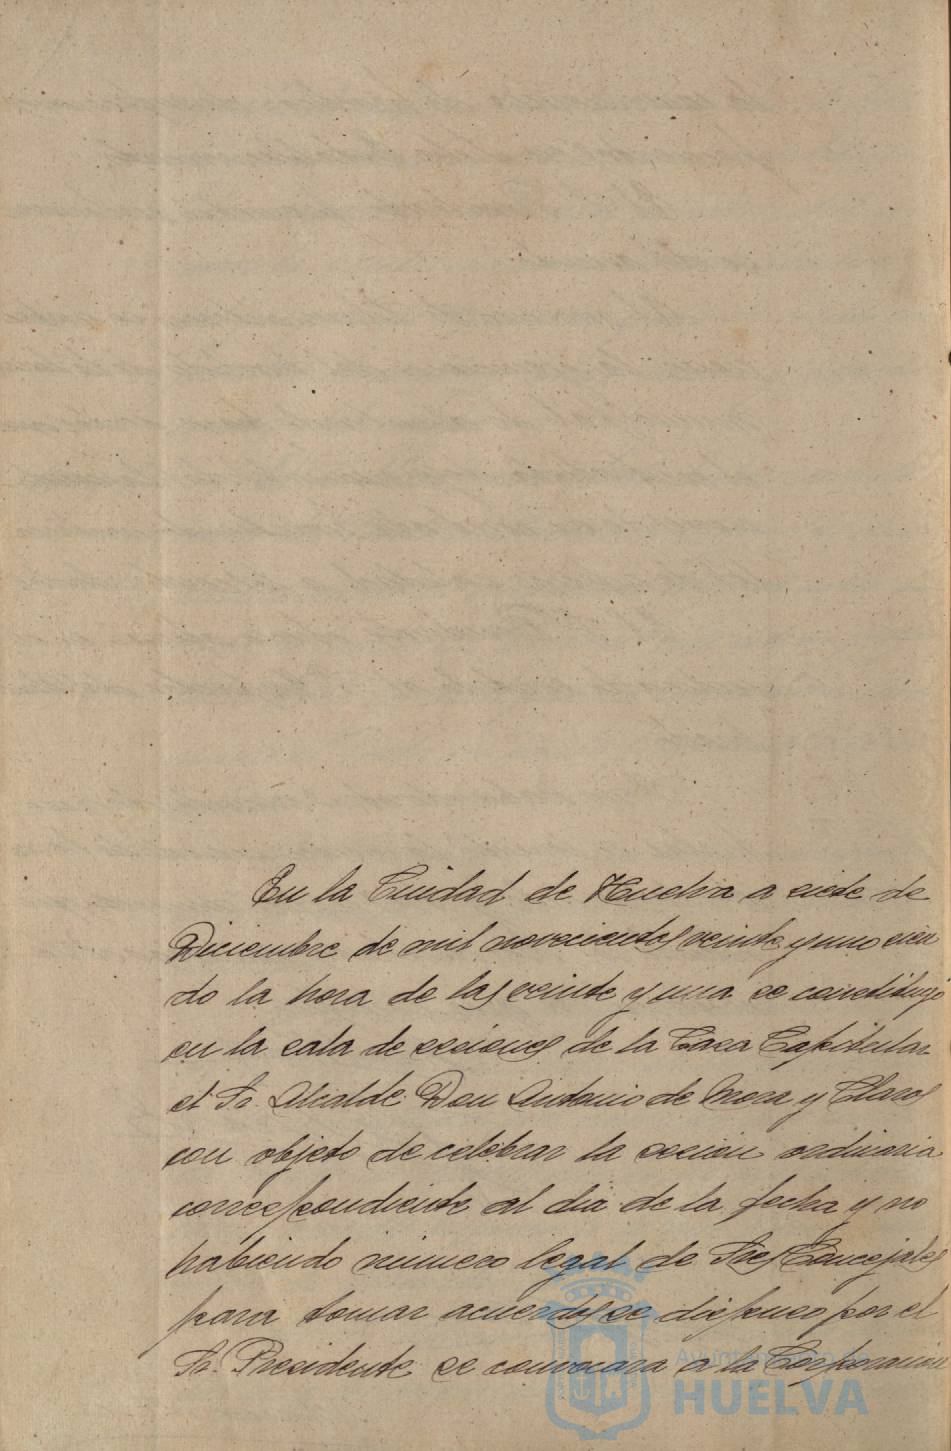 En la Ciudad de Huelva a siete de
Diciembre de mil novecientos veinte y uno sien
do la hora de las veinte y una se constituyó
en la sala de sesiones de la Casa Capitular
el Sr. Alcalde Don Antonio de Mora y Claros
con objeto de celebrar la sesion ordinaria
correspondiente al dia de la fecha y no
habiendo número legal de Sres Concejales
para tomar acuerdos se dispuso por el
Sr. Presidente se convocara a la Corporación
Ayuntamiento de
HUELVA